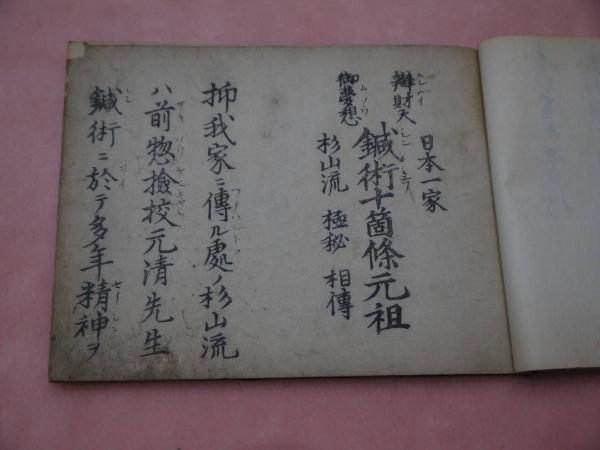 日本一家
辨財天
御夢想
鍼術十箇條元祖
杉山流 極秘 相傳
抑我家ニ傳ル處ノ杉山流
ハ前惣撿挍元清先生
鍼術ニ於テ多年精神ヲ